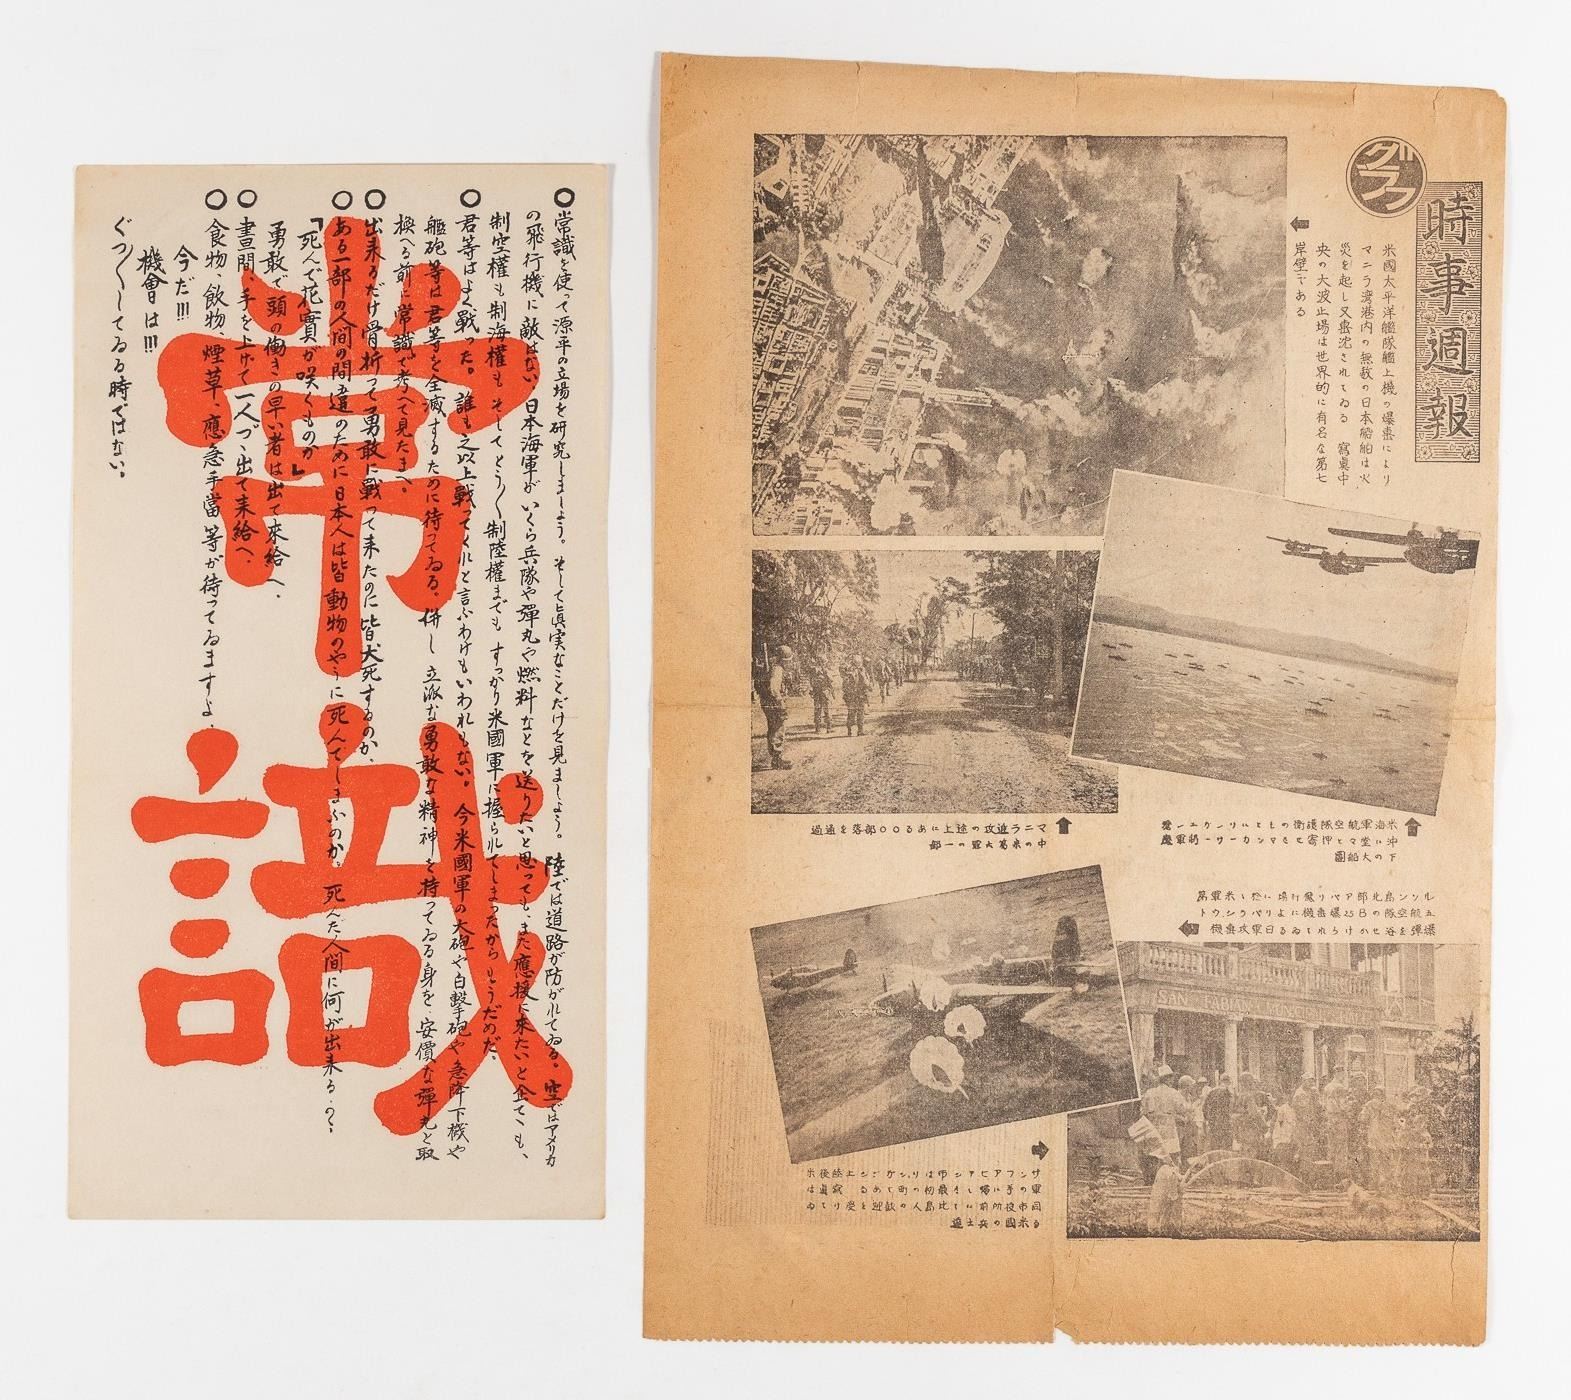 常識
○常識を使って源平の立場を研究しましょう。そして真実なことだけを見ましょう。陸では道路が防がれてゐる。空ではアメリカ
の飛行機に敵はない。日本海軍がいくら兵隊や彈丸や燃料などを送りたいと思っても、また應援に来たいと企てゝも、
制空權も制海權もそしてとう〱制陸權までもすっかり米國軍に握られてしまったからもうだめだ。
○君等はよく戰った。誰も之以上戰ってくれと言ふわけもいわれもない。今米國軍の大砲や白擊砲や急降下機や
艦砲等は君等を全滅するために待ってゐる。併し立派な勇敢な精神を持ってゐる身を、安價な彈丸と取
換へる前に常識で考へて見たまへ。
○出来るだけ骨折って勇敢に戰って来たのに皆犬死するのか、
○ある一部の人間の間違のために日本人は皆動物のやうに死んでしまふのか。死んだ人間に何が出来る。?。
「死んで花實が咲くものか」
勇敢で頭の働きの早い者は出て來給へ、
○晝間、手を上げて一人づゝ出て来給へ。
○食物、飲物、煙草、應急手當等が待ってゐますよ。
今だ!!!
機會は!!!
ぐづ〱してゐる時ではない。
グラフ
時事週報
米國太平洋艦隊艦上機の爆擊により
マニラ湾港内の無数の日本船舶は火
災を起し又盡沈されてゐる 寫眞中
央の大波止場は世界的に有名な第七
岸壁である
マニラ進攻の途上にある○○部落を通過
中の米萬大軍の一部
米海軍航空隊護衛のもとにリンガエン灣
沖に堂々と押寄せるマッカーサー將軍麾
下の大船團
ルソン島北部アパリ飛行場に於て米軍第
五航空隊のB25爆擊機によりパラシウト
爆彈を浴せかけられてゐる日軍攻擊機
SAN FABIAN